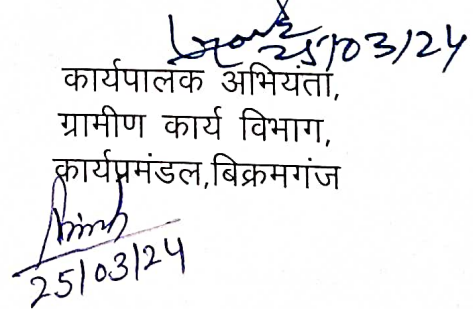 25/03/24
कार्यपालक अभियंता,
ग्रामीण कार्य विभाग,
कार्यप्रमंडल,बिक्रमगंज
25/03/24